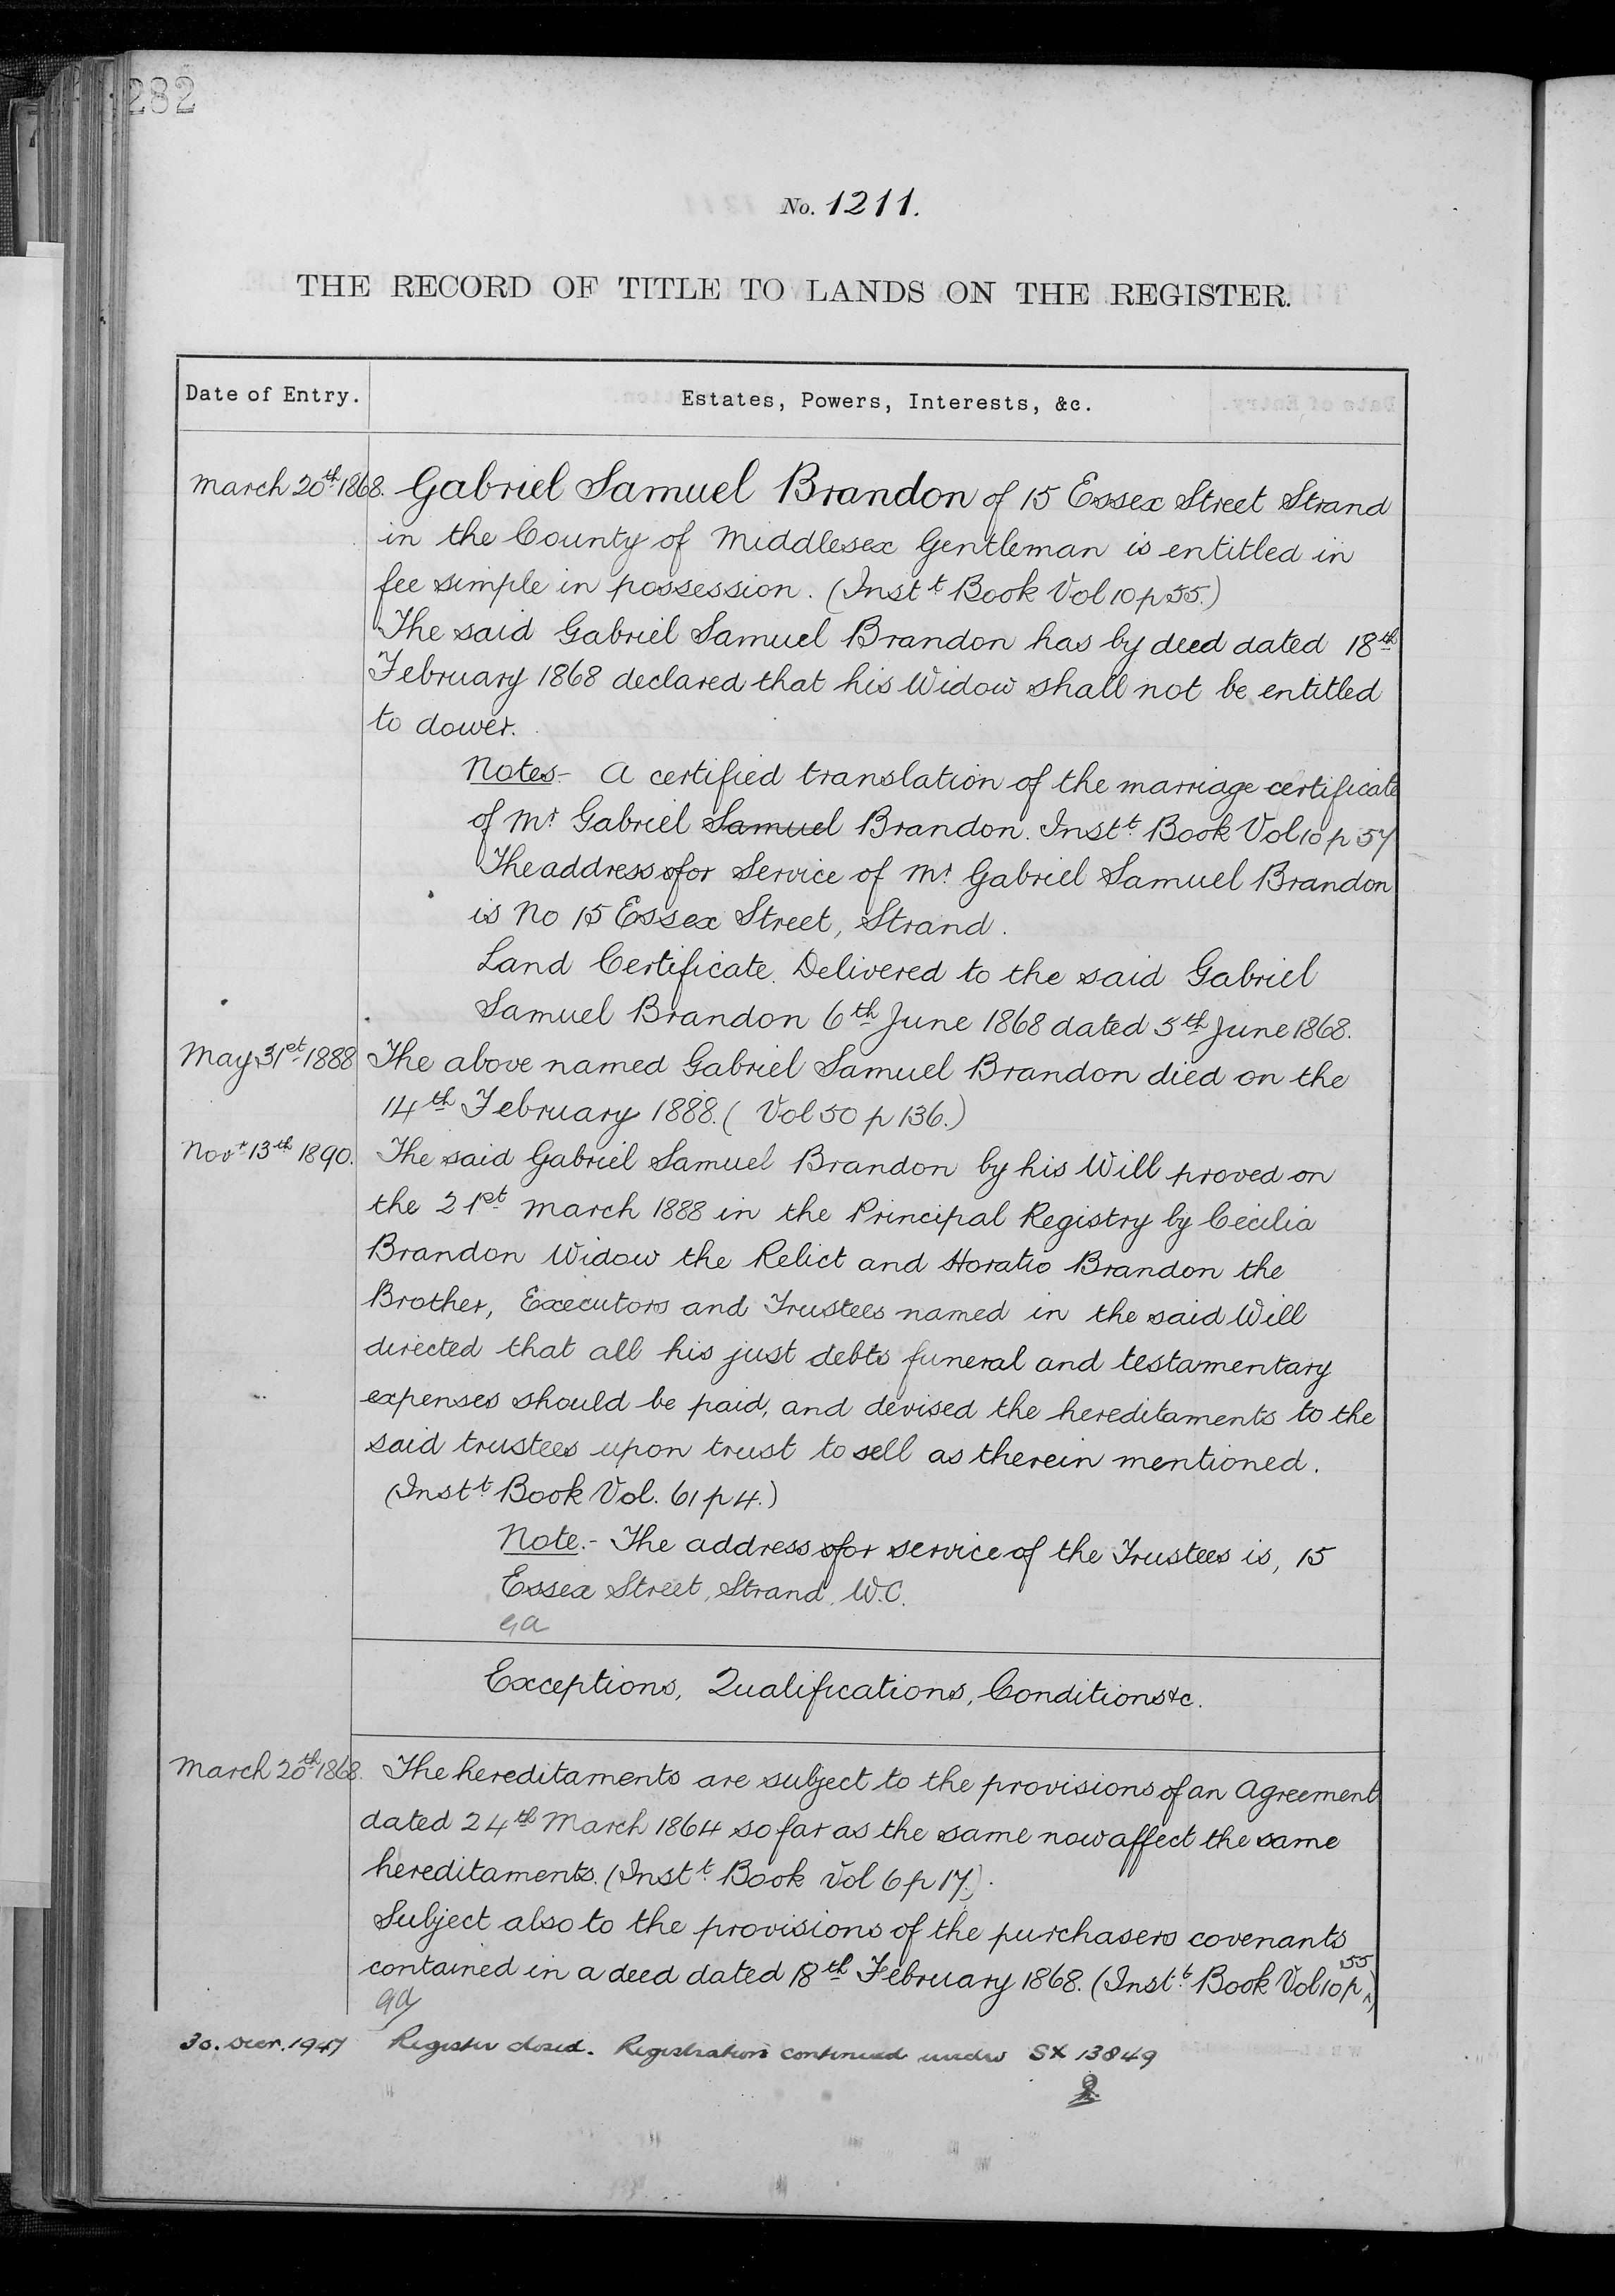 282
No. 1211.
THE RECORD OF TITLE TO LANDS ON THE REGISTER.
Date of Entry.
Estates, Powers, Interests, &c.
March 20th 1868. Gabriel Samuel Brandon of 15 Essex Street Strand
in the County of Middlesex Gentleman is entitled in
fee simple in possession. (Instt Book Vol 10 p 55.)
The said Gabriel Samuel Brandon has by deed dated 18th
February 1868 declared that his Widow shall not be entitled
to dower.
Notes- A certified translation of the marriage certificate
of Mr Gabriel Samuel Brandon. Instt Book Vol 10 p 57
The address for Service of Mr Gabriel Samuel Brandon
is No 15 Essex Street, Strand.
Land Certificate. Delivered to the said Gabriel
Samuel Brandon 6th June 1868 dated 5th June 1868.
May 31st 1888 The above named Gabriel Samuel Brandon died on the
14th February 1888. (Vol 50 p 136.)
Novr 13th 1890. The said Gabriel Samuel Brandon by his Will proved on
the 21st March 1888 in the Principal Registry by Cecilia
Brandon Widow the Relict and Horatio Brandon the
Brother, Executors and Trustees named in the said Will
directed that all his just debts funeral and testamentary
expenses should be paid, and devised the hereditaments to the
said trustees upon trust to sell as therein mentioned.
(Instt Book Vol. 61 p 4.)
Note.- The address for service of the Trustees is, 15
Essex Street, Strand, W.C.
Exceptions, Qualifications, Conditions &c.
March 20th 1868. The hereditaments are subject to the provisions of an Agreement
dated 24th March 1864 so far as the same now affect the same
hereditaments. (Instt Book Vol 6 p 17.).
Subject also to the provisions of the purchasers covenants
contained in a deed dated 18th February 1868. (Instt Book Vol 10 p 55)
30. Decr. 1947 Register closed. Registration continued under SX 13849